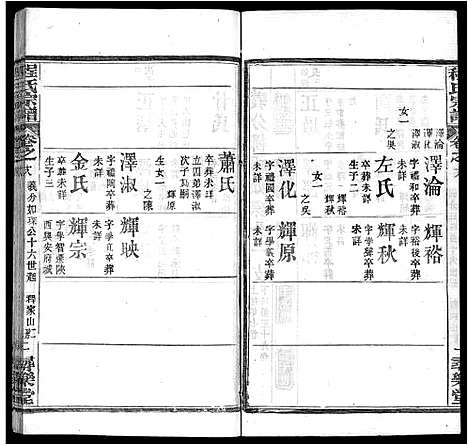 程氏宗譜
卷之
澤淪
澤淑
澤化
女一
之吳
澤淪
字禮和卒葬
未詳
左氏
卒葬未詳
生子二
輝裕
輝秋
女一
之陳
澤化
字禮國卒葬
未詳
輝裕
字裕後卒葬
未詳
輝秋
字學
卒葬
未詳
輝原
字學
卒葬
未詳
蕭氏
卒葬未詳
立四弟澤淑
次子為嗣
輝原
生女一
之陳
澤淑
字禮園卒葬
未詳
金氏
卒葬未詳
生子三
輝映
字學
卒葬
未詳
輝宗
字學智葬陝
西興安府城
程氏宗譜
卷之
義分如璨公十六世起
釋家山
尋樂堂
尋樂堂